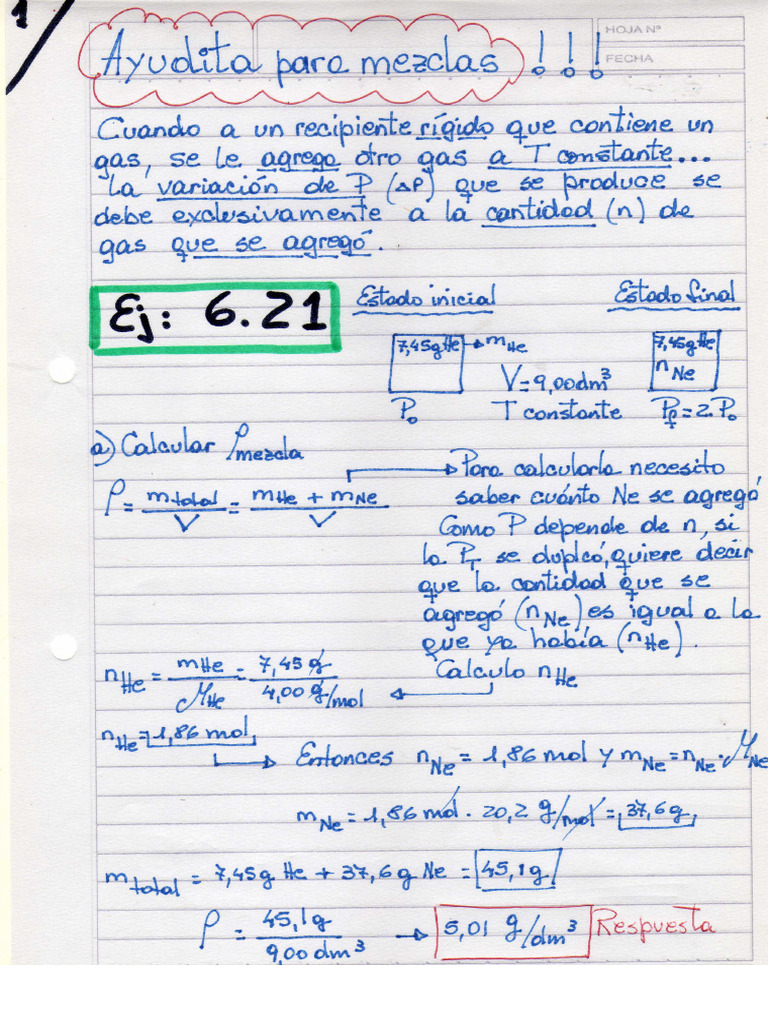 1/
HOJA Nº
FECHA
Ayudita para mezclas !!!
Cuando a un recipiente rígido que contiene un
gas, se le agrega otro gas a T constante...
La variación de P (ΔP) que se produce se
debe exclusivamente a la cantidad (n) de
gas que se agregó.
Ej: 6.21
Estado inicial
Estado final
7,45g He → m_He
7,45g He
n_Ne
V = 9,00 dm³
P₀
T constante
P_f = 2.P₀
a) Calcular ρ mezcla
ρ = m total / V = m_He + m_Ne / V
Para calcularla necesito
saber cuánto Ne se agregó
Como P depende de n, si
la P_T se duplcó, quiere decir
que la cantidad que se
agregó (n_Ne) es igual a la
que ya había (n_He).
Calculo n_He
n_He = m_He / M_He = 7,45 g / 4,00 g/mol
n_He = 1,86 mol
Entonces n_Ne = 1,86 mol y m_Ne = n_Ne . M_Ne
m_Ne = 1,86 mol . 20,2 g/mol = 37,6 g
m total = 7,45g He + 37,6 g Ne = 45,1g
ρ = 45,1g / 9,00 dm³ → 5,01 g/dm³ Respuesta